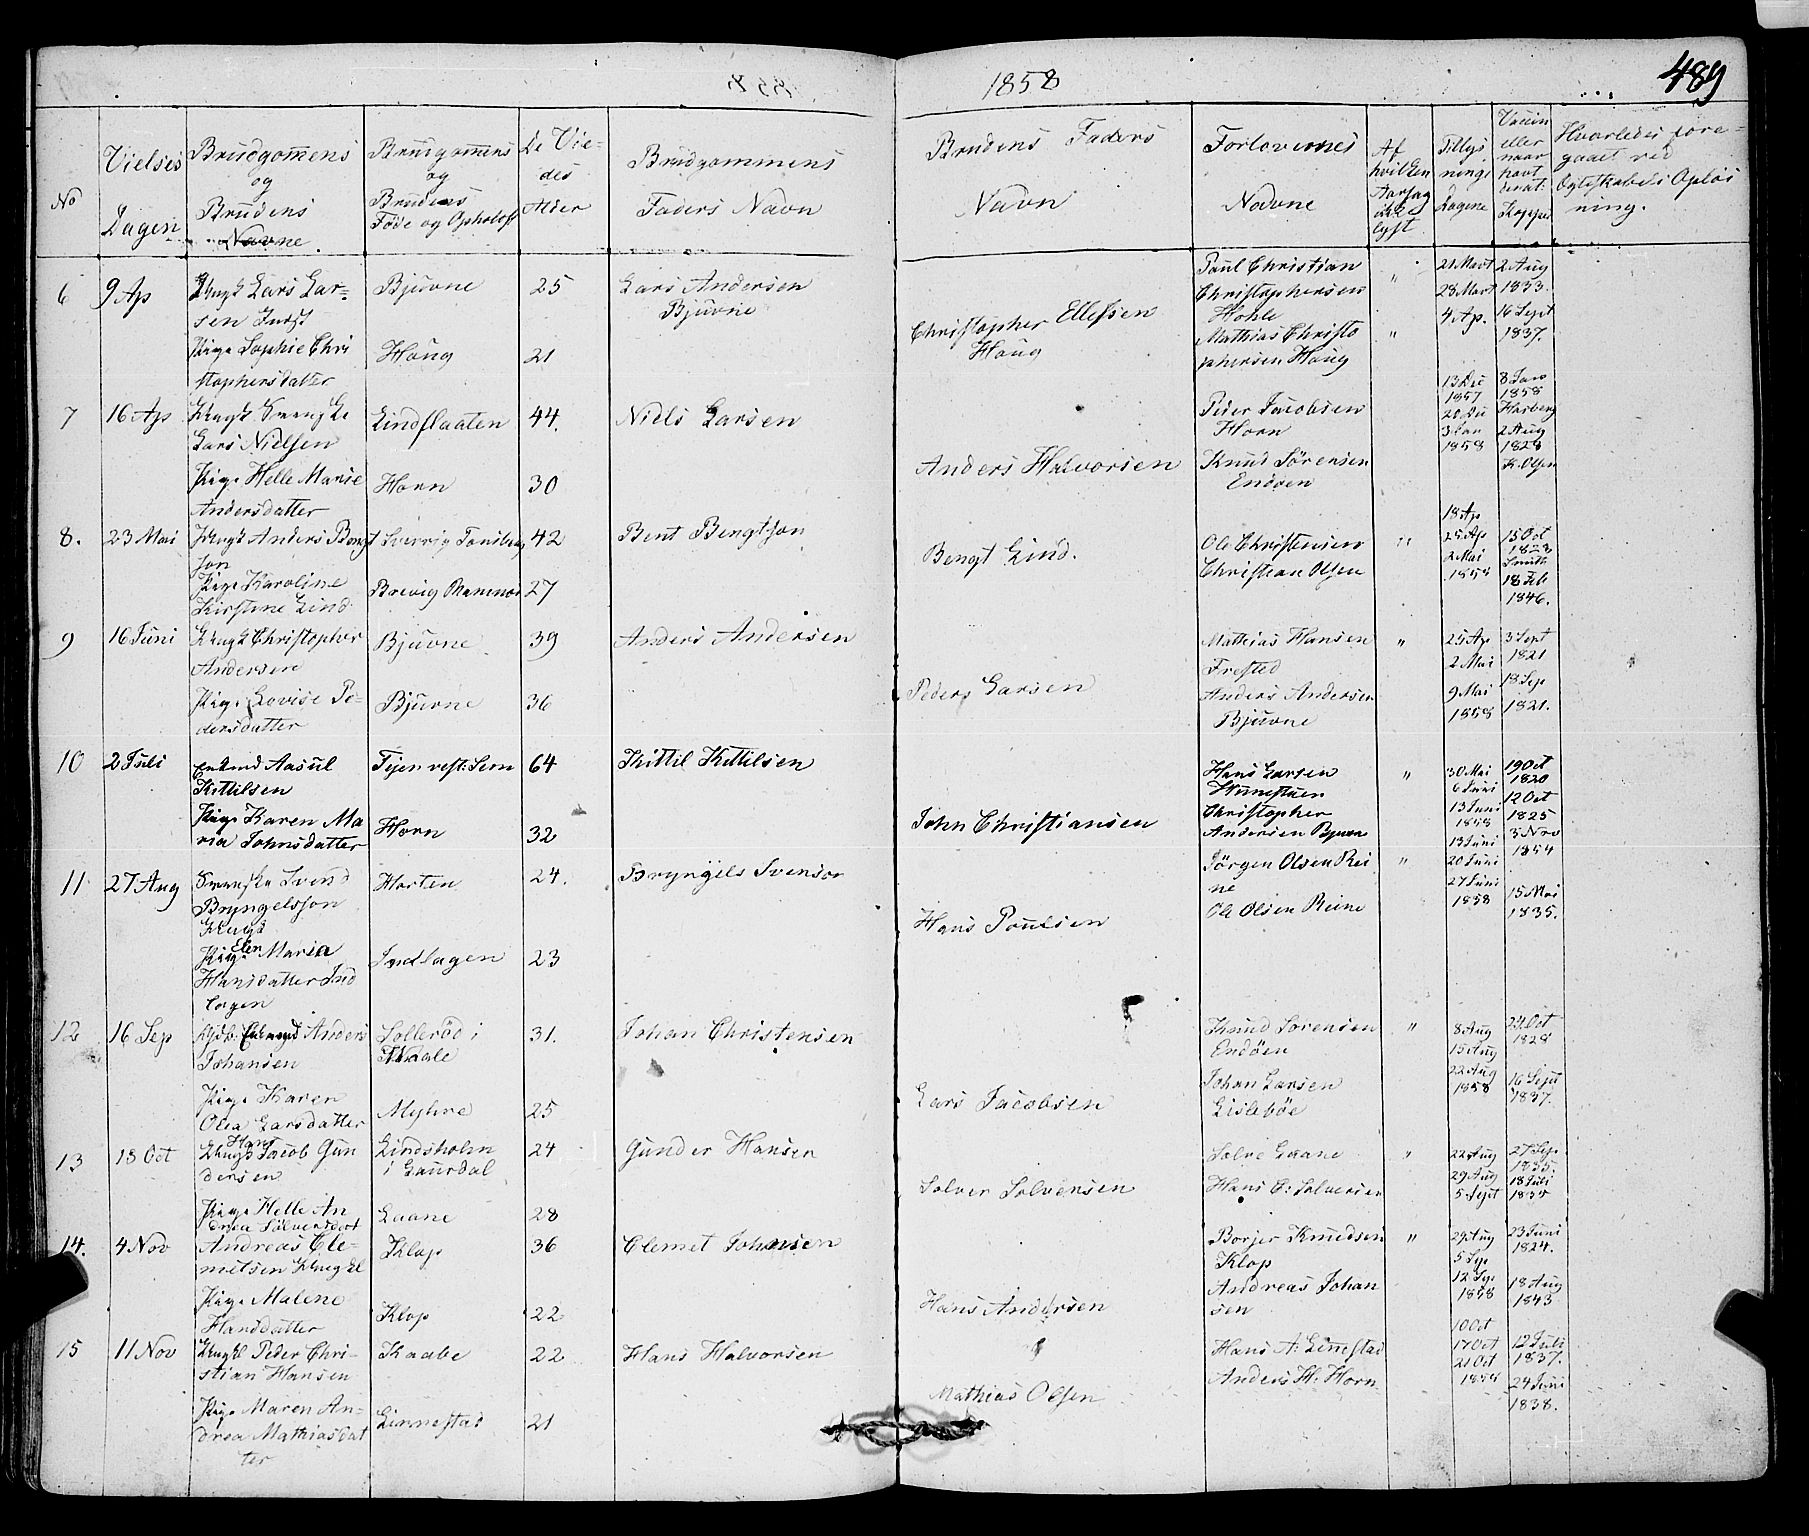 1858
489
No
Vielses Dagen
Brudgommens og Brudens Navne
Brudgommens og Brudens Føde og Opholdst
De Viedes Alder
Brudgommens Faders Navn
Brudens Faders Navn
Forlovernes Navne
Af hvilken Aarsag ikke lyst
Tillysnings Dagene
Vaccin eller naar havt Kopper
Hvorledes foregaaet ved Ægteskabets Opløsning.
6
9 Ap
Ungk Lars Larsen
Bjuvne
25
Lars Andersen
Bjuvne
Pige Sophie Christophersdatter
Haug
21
Christopher Ellefsen
Haug
Paul Christian
Christophersen
Hohle
Mathias Christophersen Haug
21 Mart
28 Mart
4 Ap.
2 Aug
1833.
16 Sept
1837.
7
16 Ap
Lars Nielsen
Lindflaaten
44.
Niels Larsen
Pige Helle Marie
Andersdatter
Horn
30
Anders Halvorsen
Peder Jacobsen
Horn
Knud Sörensen
Endöen
13 Dec
1857
20 De
3 Jan
1858
8 Jan
1858
2 Aug
1828
K. Olsen
8.
23 Mai
Ungk Anders Bengtson
42
Bent Bengtson
Pige Karoline
Kirstine Lind
Brevig
27
Bengt Lind.
Ole Christensen
Christian Olsen
18 Ap
25 Ap
2 Mai
1858
15 Oct
1828
Smith
18 Feb
1846.
9
16 Juni
Ungk Christopher
Andersen
Bjuvne
39
Anders Andersen
Pige Lovise Pedersdatter
Bjuvne
36
Peders Larsen
Mathias Hansen
Frested
Anders Andersen
Bjuvne
25 Ap
2 Mai
9 Mai
1858
3 Sept
1821
18 Sep
1821.
10
2 Juli
Enkmd Aasul
Kittilsen
Tejen
64
Kittil Kittilsen
Pige Karen Maria Johnsdatter
Horn
32
John Christiansen
Hans Larsen
Christopher
Andersen Bjuvne
30 Mai
6 Juni
13 Juni
1858
19 Oct
1820
12 Oct
1825
3 Nov
1854
11
27 Aug
Svenske Svend
Bryngelsson
Ungk
Horten
24.
Bryngels Svenson
Pige Elen Maria
Hansdatter Indlagen
Indlagen
23
Hans Poulsen
Jörgen Olsen Reine
Ole Olsen Reine
13 Juni
20 Juni
27 Juni
1858
15 Mai
1835.
12
16 Sep
Enkemd Anders
Johansen
Solleröd i
31.
Johan Christensen
Pige Karen
Olea Larsdatter
Myhre
25
Lars Jacobsen
Knud Sorensen
Endöen
Johan Larsen
Lisleböe
8 Aug
15 Aug
22 Aug
1858
29 Oct
1828
16 Sept
1837.
13
18 Oct
Ungk Hans Jacob Gundersen
Lindsholm
i Laurdal
24
Gunder Hansen
Pige Helle Andrea Solversdat
Laane
28
Solver Solversen
Solve Laane
Hans C: Solversen
22 Aug
29 Aug
5 Sept
27 Sep
1835.
18 Juli
14.
4 Nov
Andreas Clemetsen Ungkl
Klop
36
Clemet Johansen
Pige Malene
Hansdatter
Klop
22
Hans Andersen
Borjer Knudsen
Klop
Andreas Johansen
29 Aug
5 Sep
12 Sep
1858
23 Juni
1824.
18 Aug
1843
15
11 Nov
Ungkl Peder Christian Hansen
Kaabe
22
Hans Halvorsen
Pige Maren Andrea Mathiasdatter
Linnestad
21
Mathias Olsen
Hans A: Linnestad
Anders H: Horn
10 Oct
17 Oct
21 Oct
1858
12 Juli
1837.
24 Juni
1838.